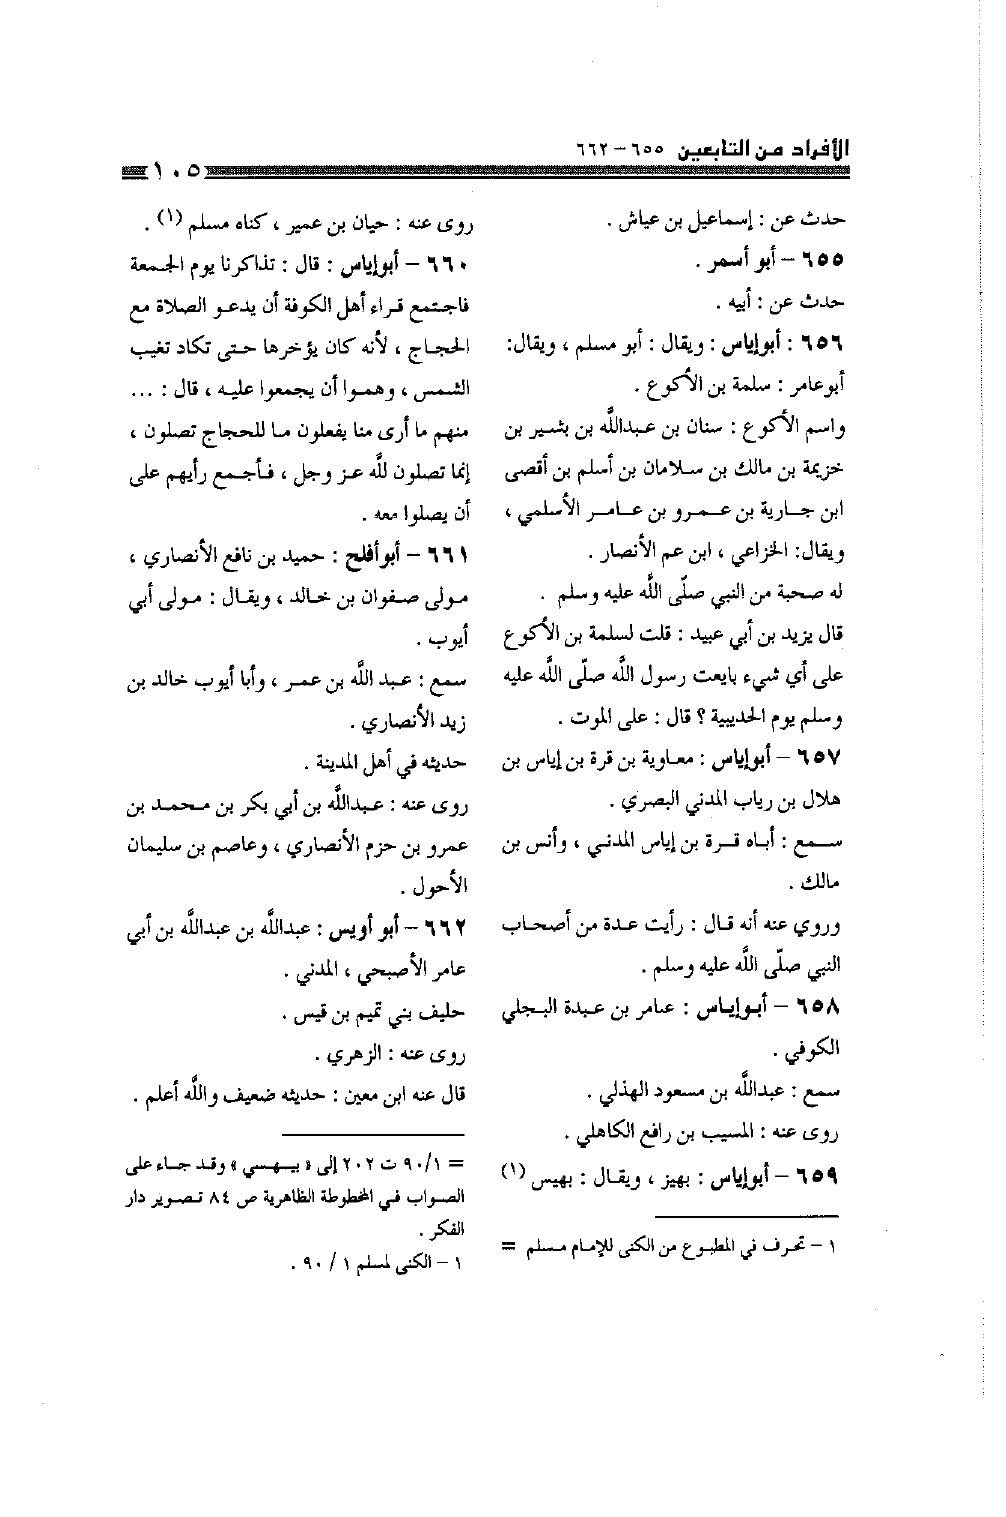 الأفراد من التابعين ٦٥٥ – ٦٦٢
١٠٥
حدث عن : إسماعيل بن عياش .
٦٥٥ – أبو أسمر .
حدث عن : أبيه .
٦٥٦ : أبوإياس : ويقال : أبو مسلم ، ويقال:
أبوعامر : سلمة بن الأكوع .
واسم الأكوع : سنان بن عبدالله بن بشير بن
خزيمة بن مالك بن سلامان بن أسلم بن أقصى
ابن جارية بن عمرو بن عامر الأسلمي ،
ويقال: الخزاعي ، ابن عم الأنصار .
له صحبة من النبي صلّى الله عليه وسلم .
قال يزيد بن أبي عبيد : قلت لسلمة بن الأكوع
على أي شيء بايعت رسول الله صلّى الله عليه
وسلم يوم الحديبية ؟ قال : على الموت .
٦٥٧ – أبوإياس : معاوية بن قرة بن إياس بن
هلال بن رياب المدني البصري .
سمع : أباه قرة بن إياس المدني ، وأنس بن
مالك .
وروي عنه أنه قال : رأيت عدة من أصحاب
النبي صلّى الله عليه وسلم .
٦٥٨ – أبوإياس : عامر بن عبدة البجلي
الكوفي .
سمع : عبدالله بن مسعود الهذلي .
روى عنه : المسيب بن رافع الكاهلي .
٦٥٩ – أبوإياس : بهيز ، ويقال : بهيس (١)
١ – تحرف في المطبوع من الكنى للإمام مسلم =
روى عنه : حيان بن عمير ، كناه مسلم (١) .
٦٦٠ – أبوإياس : قال : تذاكرنا يوم الجمعة
فاجتمع قراء أهل الكوفة أن يدعو الصلاة مع
الحجاج ، لأنه كان يؤخرها حتى تكاد تغيب
الشمس ، وهموا أن يجمعوا عليه ، قال : ...
منهم ما أرى منا يفعلون ما للحجاج تصلون ،
إنما تصلون لله عز وجل ، فأجمع رأيهم على
أن يصلوا معه .
٦٦١ – أبوأفلح : حميد بن نافع الأنصاري ،
مولى صفوان بن خالد ، ويقال : مولى أبي
أيوب .
سمع : عبد الله بن عمر ، وأبا أيوب خالد بن
زيد الأنصاري .
حديثه في أهل المدينة .
روى عنه : عبدالله بن أبي بكر بن محمد بن
عمرو بن حزم الأنصاري ، وعاصم بن سليمان
الأحول .
٦٦٢ – أبو أويس : عبدالله بن عبدالله بن أبي
عامر الأصبحي ، المدني .
حليف بني تميم بن قيس .
روى عنه : الزهري .
قال عنه ابن معين : حديثه ضعيف والله أعلم .
= ٩٠/١ ت ٢٠٢ إلى « بيهسي » وقد جاء على
الصواب في المخطوطة الظاهرية ص ٨٤ تصوير دار
الفكر .
١ – الكنى لمسلم ١ / ٩٠ .